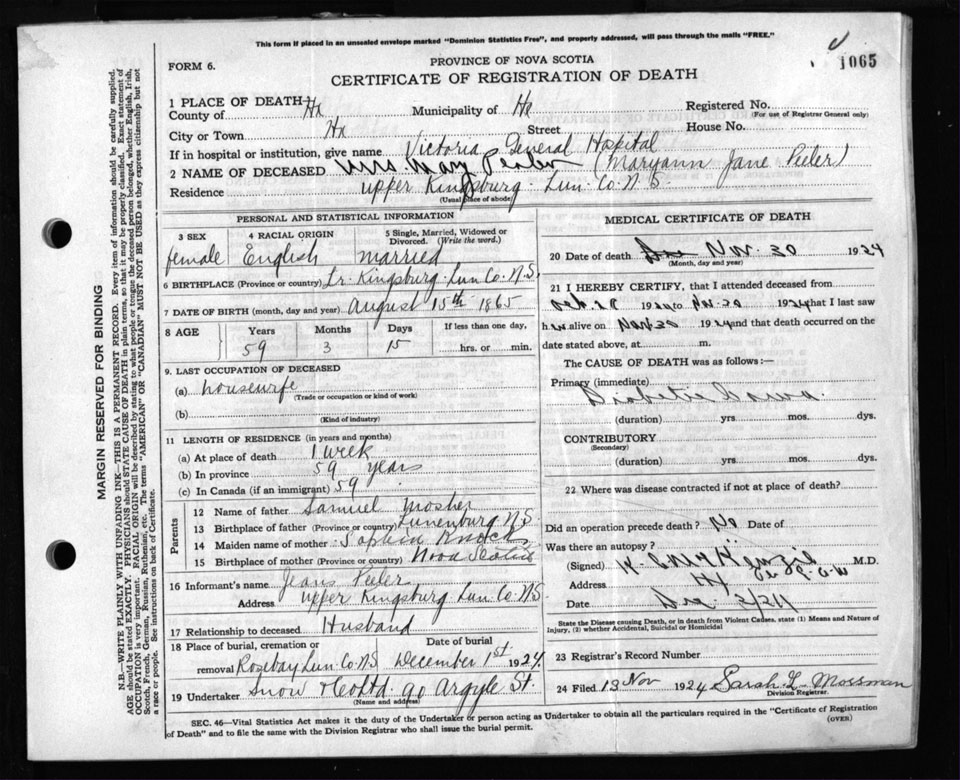 This form if placed in an unsealed envelope marked "Dominion Statistics Free", and properly addressed, will pass through the mails "FREE."
1065
FORM 6.
PROVINCE OF NOVA SCOTIA
CERTIFICATE OF REGISTRATION OF DEATH
1 PLACE OF DEATH—
County of Hx Municipality of Hx Registered No.
(For use of Registrar General only)
City or Town Hx Street House No.
If in hospital or institution, give name Victoria General Hospital
2 NAME OF DECEASED Mrs Mary Peeler (Maryann Jane Peeler)
Residence upper Kingsburg Lun. Co. N.S.
(Usual place of abode)
PERSONAL AND STATISTICAL INFORMATION
3 SEX 4 RACIAL ORIGIN 5 Single, Married, Widowed or Divorced. (Write the word.)
female English married
6 BIRTHPLACE (Province or country) Lr. Kingsburg Lun. Co. N.S.
7 DATE OF BIRTH (month, day and year) August 15th 1865
8 AGE Years Months Days If less than one day,
59 3 15 hrs. or min.
9. LAST OCCUPATION OF DECEASED
(a) housewife
(Trade or occupation or kind of work)
(b)
(Kind of industry)
11 LENGTH OF RESIDENCE (in years and months)
(a) At place of death 1 week
(b) In province 59 years
(c) In Canada (if an immigrant) 59
Parents
12 Name of father Samuel Mosher
13 Birthplace of father (Province or country) Lunenburg N.S.
14 Maiden name of mother Sophia Knock
15 Birthplace of mother (Province or country) Nova Scotia
16 Informant's name Peeler
Address upper Kingsburg Lun. Co. N.S.
17 Relationship to deceased Husband
18 Place of burial, cremation or removal Rosebay Lun. Co. N.S. Date of burial December 1st 1924
19 Undertaker Snow & Co Ltd. 90 Argyle St.
(Name and address)
MEDICAL CERTIFICATE OF DEATH
20 Date of death Nov. 30 1924
(Month, day and year)
21 I HEREBY CERTIFY, that I attended deceased from
1924 to Nov. 30 1924 that I last saw
h alive on Nov. 30 1924 and that death occurred on the
date stated above, at m.
The CAUSE OF DEATH was as follows:—
Primary (immediate)
Diabetic Coma.
(duration) yrs mos. dys.
CONTRIBUTORY
(Secondary)
(duration) yrs. mos. dys.
22 Where was disease contracted if not at place of death?
Did an operation precede death? No Date of
Was there an autopsy?
(Signed) M.D.
Address Hx
Date Dec
State the Disease causing Death, or in death from Violent Causes, state (1) Means and Nature of Injury, (2) whether Accidental, Suicidal or Homicidal
23 Registrar's Record Number
24 Filed 13 Nov 1924 Sarah L. Mossman
Division Registrar.
SEC. 46—Vital Statistics Act makes it the duty of the Undertaker or person acting as Undertaker to obtain all the particulars required in the "Certificate of Registration of Death" and to file the same with the Division Registrar who shall issue the burial permit.
(OVER)
MARGIN RESERVED FOR BINDING
N.B.—WRITE PLAINLY WITH UNFADING INK—THIS IS A PERMANENT RECORD. Every item of information should be carefully supplied.
AGE should be stated EXACTLY. PHYSICIANS should STATE CAUSE OF DEATH in plain terms, so that it may be properly classified. Exact statement of
OCCUPATION is very important. RACIAL ORIGIN will be described by stating to what people or tongue the deceased person belonged, whether English, Irish,
Scotch, French, German, Russian, Ruthenian, etc. The terms "AMERICAN" OR "CANADIAN" MUST NOT BE USED as they express citizenship but not
a race or people. See instructions on back of Certificate.